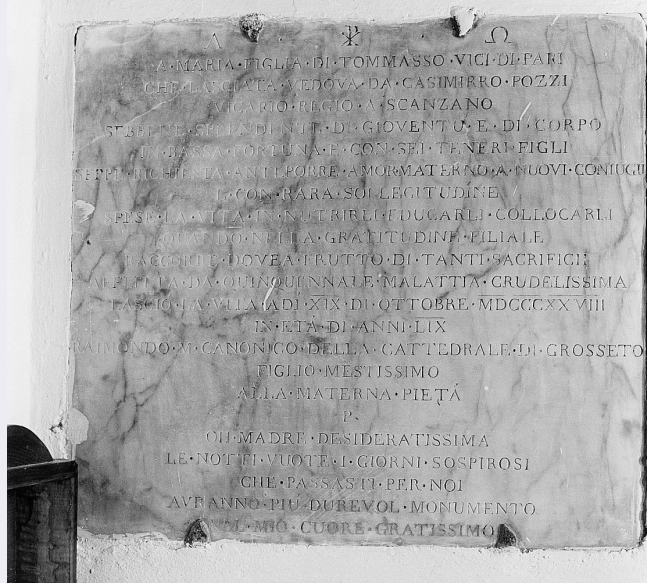 Α ☧ Ω
A·MARIA·FIGLIA·DI·TOMMASSO·VICI·DI·PARI
CHE·LASCIATA·VEDOVA·DA·CASIMIRRO·POZZI
VICARIO·REGIO·A·SCANZANO
SEBBENE·SPLENDENTE·DI·GIOVENTU·E·DI·CORPO
IN·BASSA·FORTUNA·E·CON·SEI·TENERI·FIGLI
SEPPE·RICHIESTA·ANTEPORRE·AMOR·MATERNO·A·NUOVI·CONIUGII
E·CON·RARA·SOLLECITUDINE
SPESE·LA·VITA·IN·NUTRIRLI·EDUCARLI·COLLOCARLI
QUANDO·NELLA·GRATITUDINE·FILIALE
RACCORRE·DOVEA·FRUTTO·DI·TANTI·SACRIFICII
DA·QUINQUENNALE·MALATTIA·CRUDELISSIMA
LASCIÒ·LA·VITA·ADI·XIX·DI·OTTOBRE·MDCCCXXVIII
IN·ETÁ·DI·ANNI·LIX
RAIMONDO·V·CANONICO·DELLA·CATTEDRALE·DI·GROSSETO
FIGLIO·MESTISSIMO
ALLA·MATERNA·PIETÁ
P·
OH·MADRE·DESIDERATISSIMA
LE·NOTTI·VUOTE·I·GIORNI·SOSPIROSI
CHE·PASSASTI·PER·NOI
AVRANNO·PIÙ·DUREVOL·MONUMENTO
NAL·MIO·CUORE·GRATISSIMO